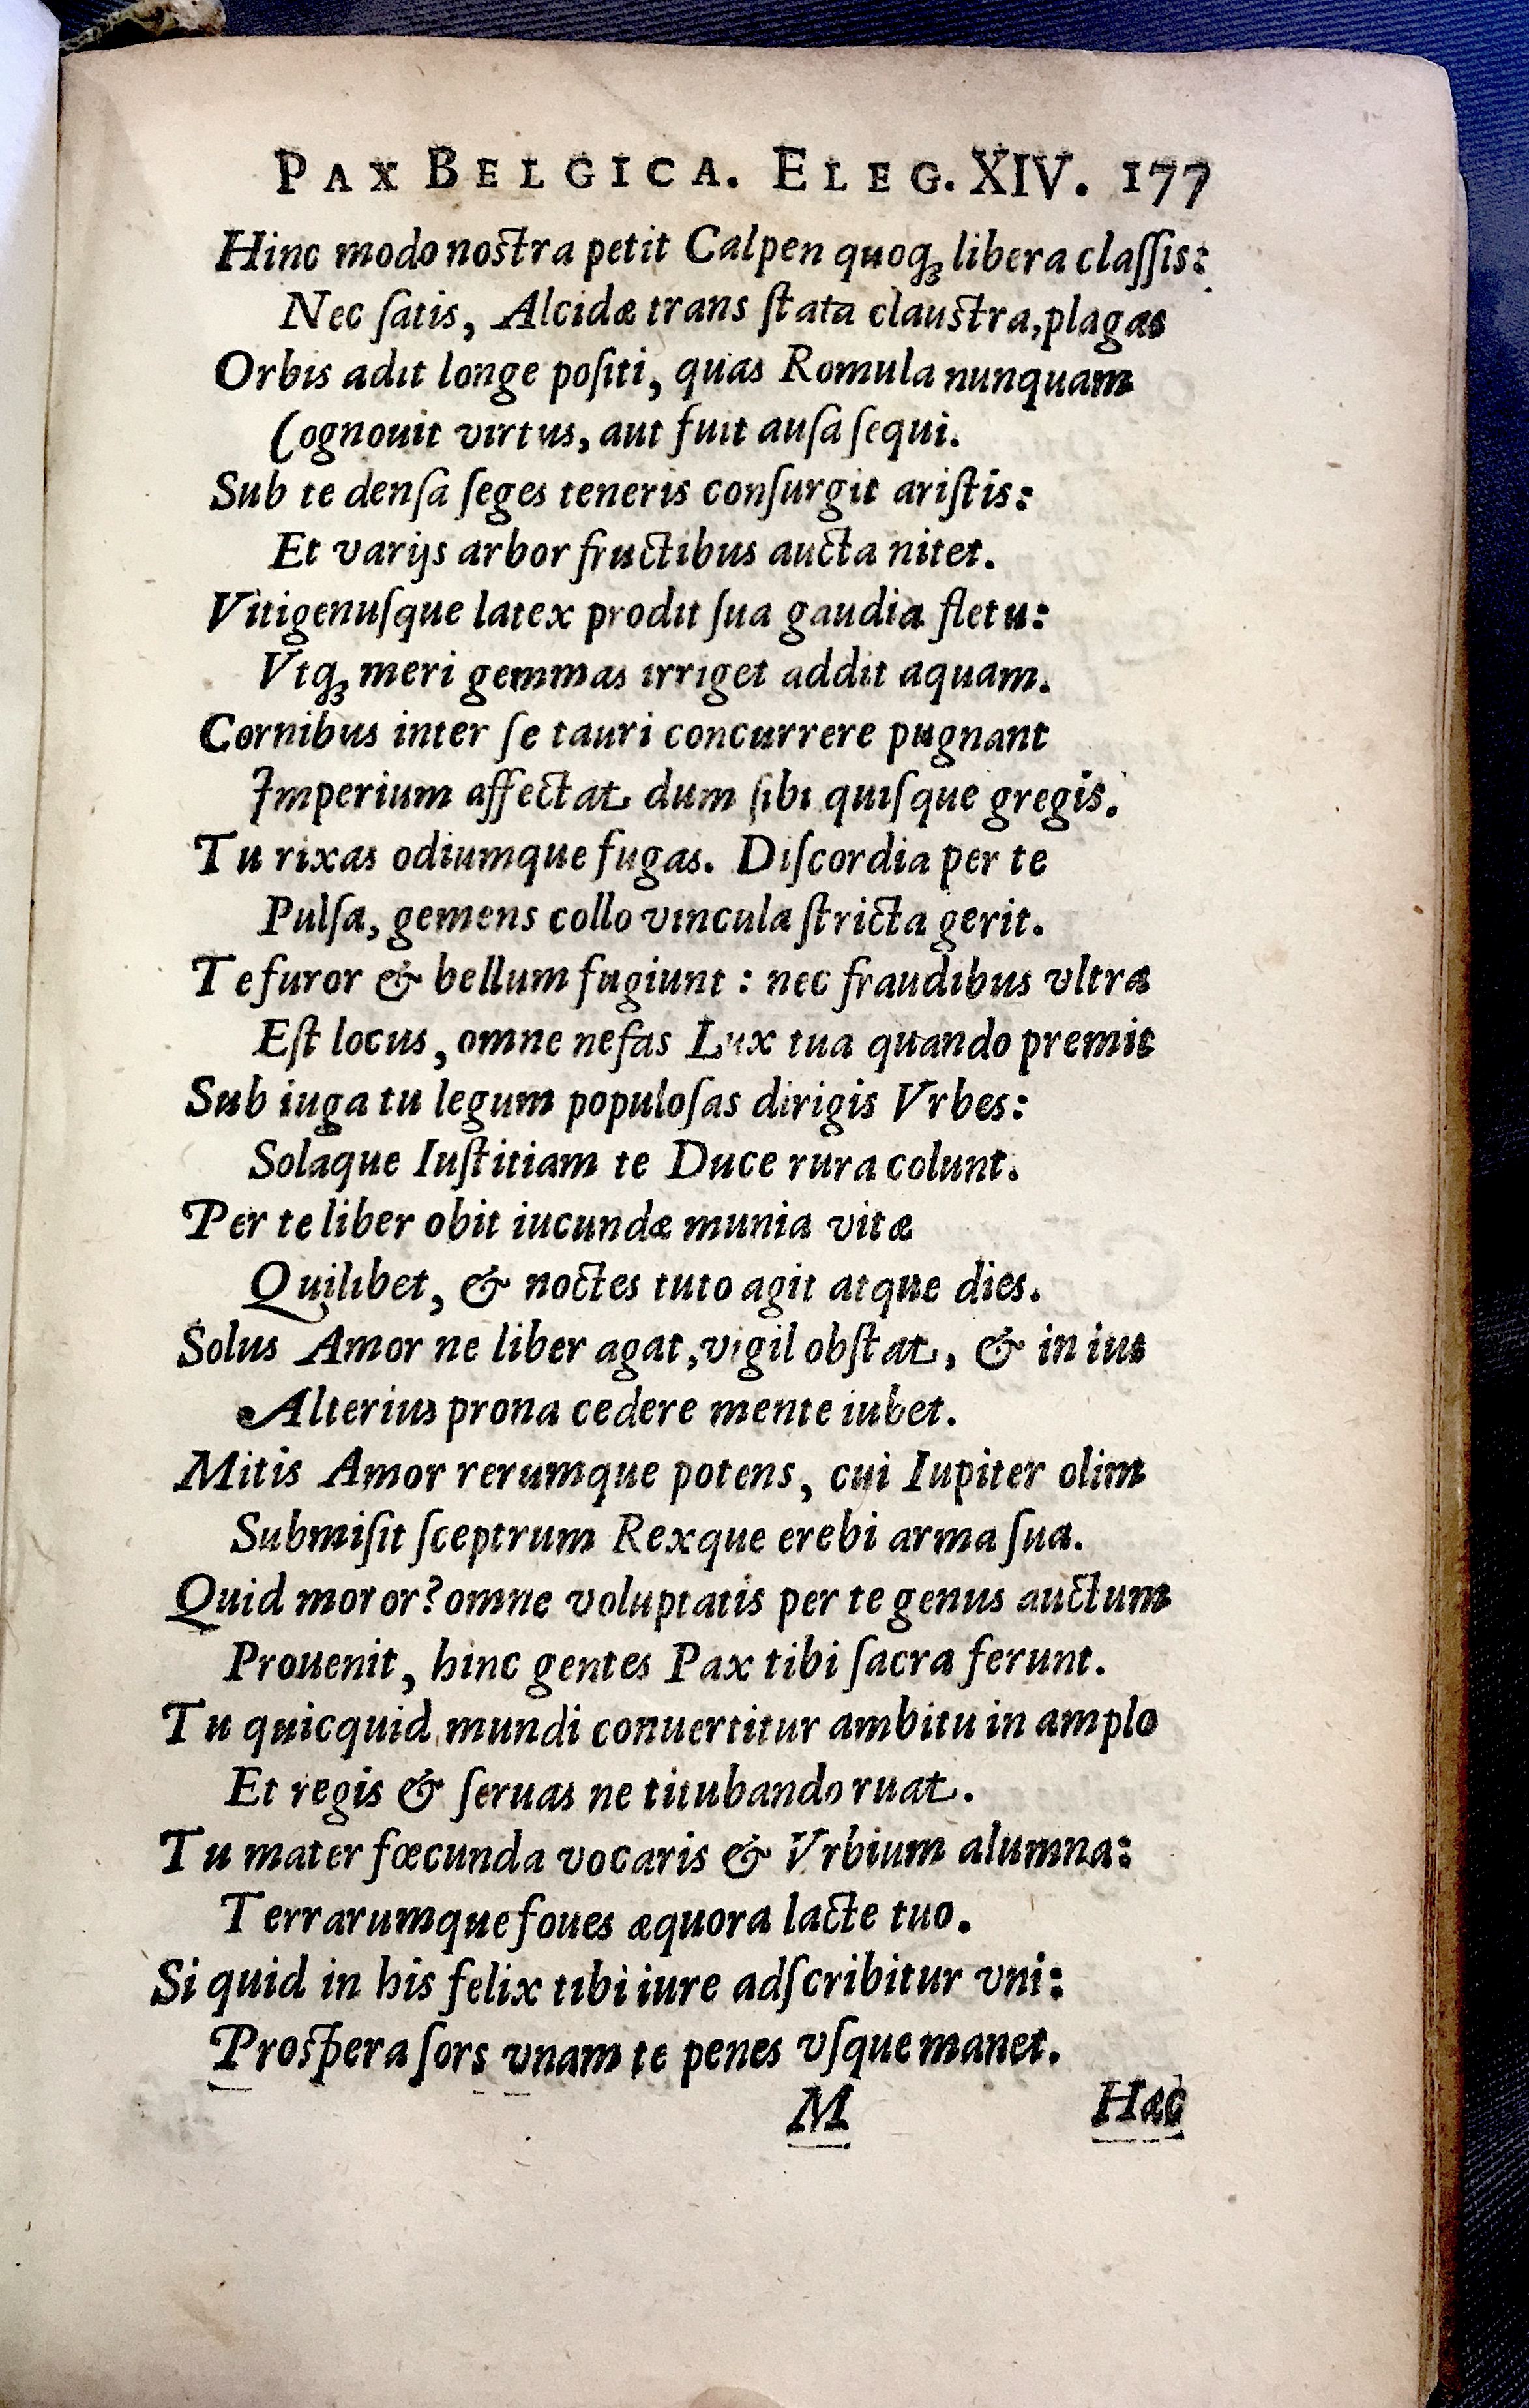 PAX BELGICA. ELEG. XIV. 177
Hinc modo noſtra petit Calpen quoq; libera claſſis:
Nec ſatis, Alcidæ trans ſtata clauſtra, plagas
Orbis adit longe poſiti, quas Romula nunquam
Cognouit virtus, aut fuit auſa ſequi.
Sub te denſa ſeges teneris conſurgit ariſtis:
Et varijs arbor fructibus aucta nitet.
Vitigenuſque latex prodit ſua gaudia fletu:
Vtq; meri gemmas irriget addit aquam.
Cornibus inter ſe tauri concurrere pugnant
Imperium affectat dum ſibi quiſque gregis.
Tu rixas odiumque fugas. Diſcordia per te
Pulſa, gemens collo vincula ſtricta gerit.
Te furor & bellum fugiunt: nec fraudibus vltra
Eſt locus, omne nefas Lux tua quando premit
Sub iuga tu legum populoſas dirigis Vrbes:
Solaque Iuſtitiam te Duce rura colunt.
Per te liber obit iucundæ munia vitæ
Quilibet, & noctes tuto agit atque dies.
Solus Amor ne liber agat, vigil obſtat, & in ius
Alterius prona cedere mente iubet.
Mitis Amor rerumque potens, cui Iupiter olim
Submiſit ſceptrum Rexque erebi arma ſua.
Quid moror? omne voluptatis per te genus auctum
Prouenit, hinc gentes Pax tibi ſacra ferunt.
Tu quicquid mundi conuertitur ambitu in amplo
Et regis & ſeruas ne titubando ruat.
Tu mater fœcunda vocaris & Vrbium alumna:
Terrarumque foues æquora lacte tuo.
Si quid in his felix tibi iure adſcribitur vni:
Proſpera ſors vnam te penes vſque manet.
M Hæc